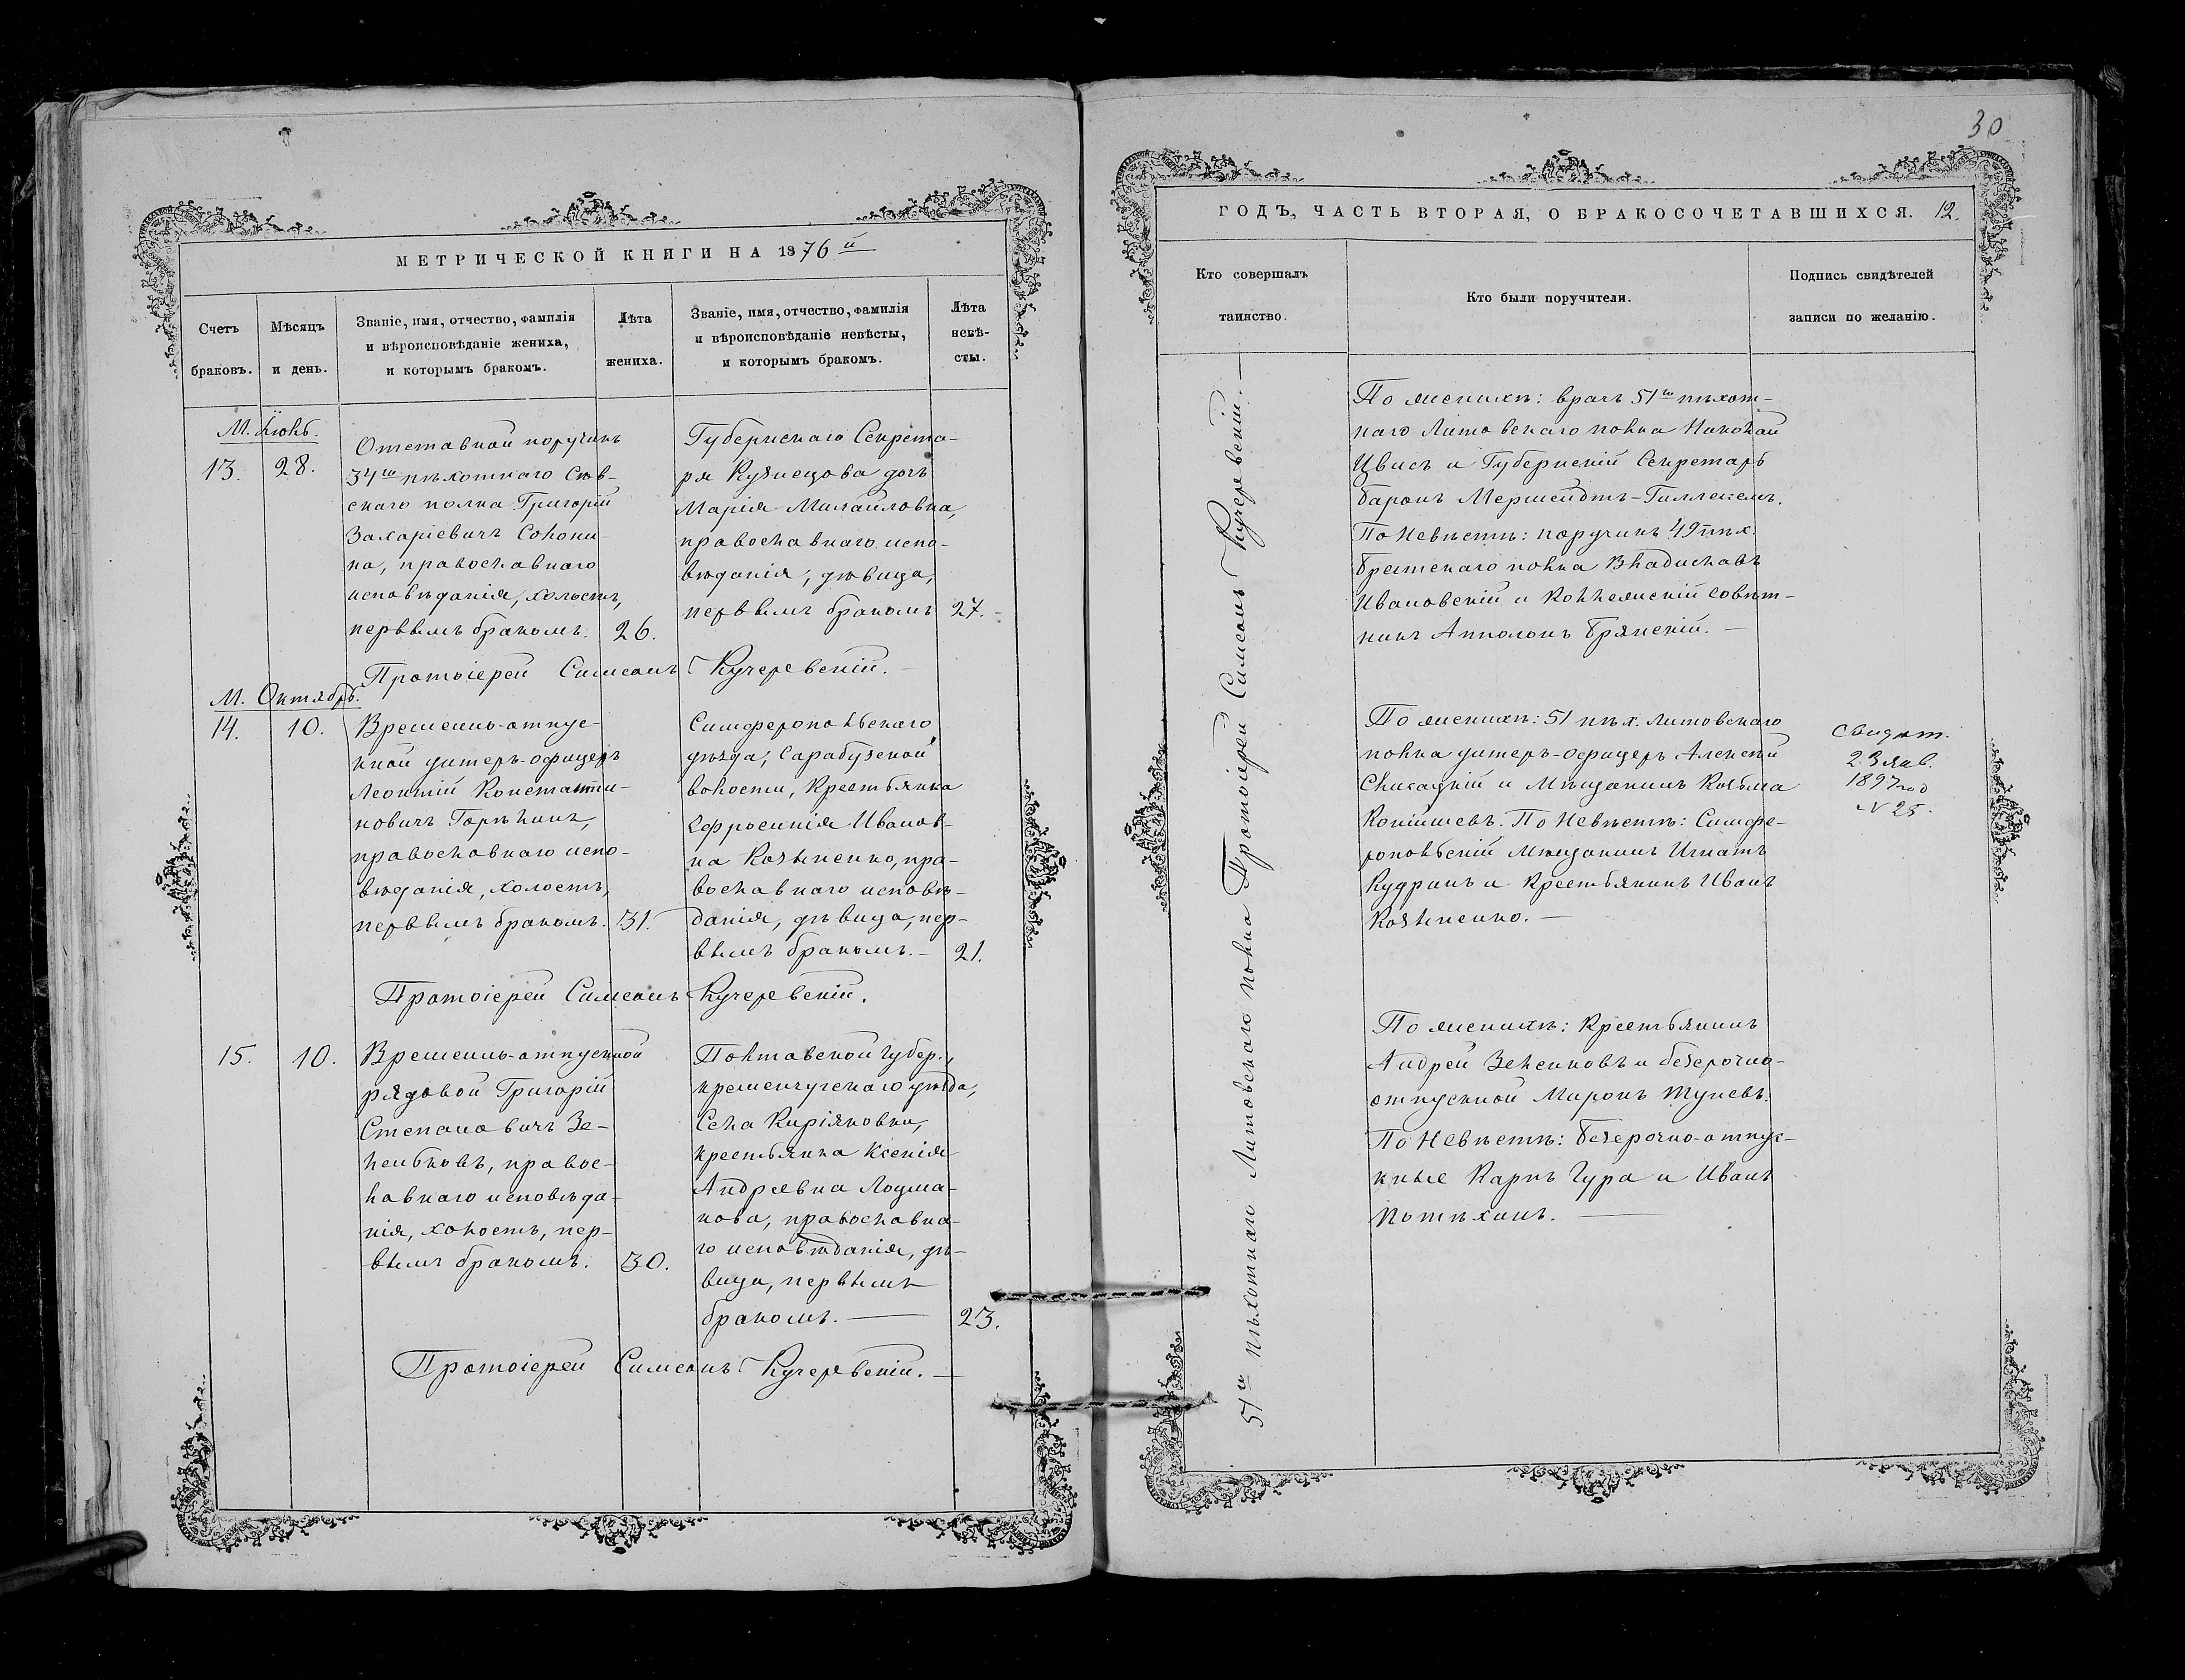 МЕТРИЧЕСКОЙ КНИГИ НА 1876й
Счетъ браковъ.
Мѣсяцъ и день.
Званіе, имя, отчество, фамилія
и вѣроисповѣданіе жениха,
и которымъ бракомъ.
Лѣта
жениха.
Званіе, имя, отчество, фамилія
и вѣроисповѣданіе невѣсты,
и которымъ бракомъ.
Лѣта
невѣ-
сты.
М. Іюнь.
13. 28.
Отставной поручикъ
34го пѣхотнаго Сѣв-
скаго полка Григорій
Захаріевичъ Сокони-
на, православнаго
исповѣданія, холостъ,
первымъ бракомъ. 26.
Губернскаго Секрета-
ря Кузнецова дочь
Марія Михайловна,
православнаго испо-
вѣданія, дѣвица,
первымъ бракомъ 27.
Протоіерей Симеонъ Кучеревскій.
М. Октябрь.
14. 10.
Временно-отпус-
кной унтеръ-офицеръ
Леонтій Константи-
новичъ Горѣкинъ,
православнаго испо-
вѣданія, холостъ,
первымъ бракомъ. 31.
Симферопольскаго
уѣзда, Сарабузской
волости, Крестьянка
Ефросинія Иванов-
на Козыненко, пра-
вославнаго исповѣ-
данія, дѣвица, пер-
вымъ бракомъ. 21.
Протоіерей Симеонъ Кучеревскій.
15. 10.
Временно-отпускной
рядовой Григорій
Степановичъ Зе-
леньковъ, правос-
лавнаго исповѣда-
нія, холостъ, пер-
вымъ бракомъ. 30.
Полтавской губер.,
кременчугскаго уѣзда,
Села Киріяковки,
крестьянка Ксенія
Андреевна Лоцма-
нова, православна-
го исповѣданія, дѣ-
вица, первымъ
бракомъ. 23.
Протоіерей Симеонъ Кучеревскій.
30
ГОДЪ, ЧАСТЬ ВТОРАЯ, О БРАКОСОЧЕТАВШИХСЯ. 12.
Кто совершалъ
таинство.
Кто были поручители.
Подпись свидѣтелей
записи по желанію.
51го пѣхотнаго Литовскаго полка Протоіерей Симеонъ Кучеревскій.
По женихѣ: врачъ 51го пѣхот-
наго Литовскаго полка Николай
Цвисъ и Губернскій Секретарь
баронъ Мершейдтъ-Гиллесемъ.
По Невѣстѣ: поручикъ 49 пѣх.
Брестскаго полка Владиславъ
Ивановскій и Коллежскій совѣт-
никъ Апполонъ Брянскій.
По женихѣ: 51 пѣх. Литовскаго
полка унтеръ-офицеръ Алексѣй
Слисацкій и Мѣщанинъ Козьма
Копійшевъ. По Невѣстѣ: Симфе-
ропольскій Мѣщанинъ Игнатъ
Кудринъ и Крестьянинъ Иванъ
Козыненко.
Свидѣт.
23 янв.
1897 год
N 25.
По женихѣ: Крестьянинъ
Андрей Зеленковъ и безсрочно-
отпускной Миронъ Тупевъ.
По Невѣстѣ: безсрочно-отпус-
кные Карпъ Гура и Иванъ
Потѣхинъ.